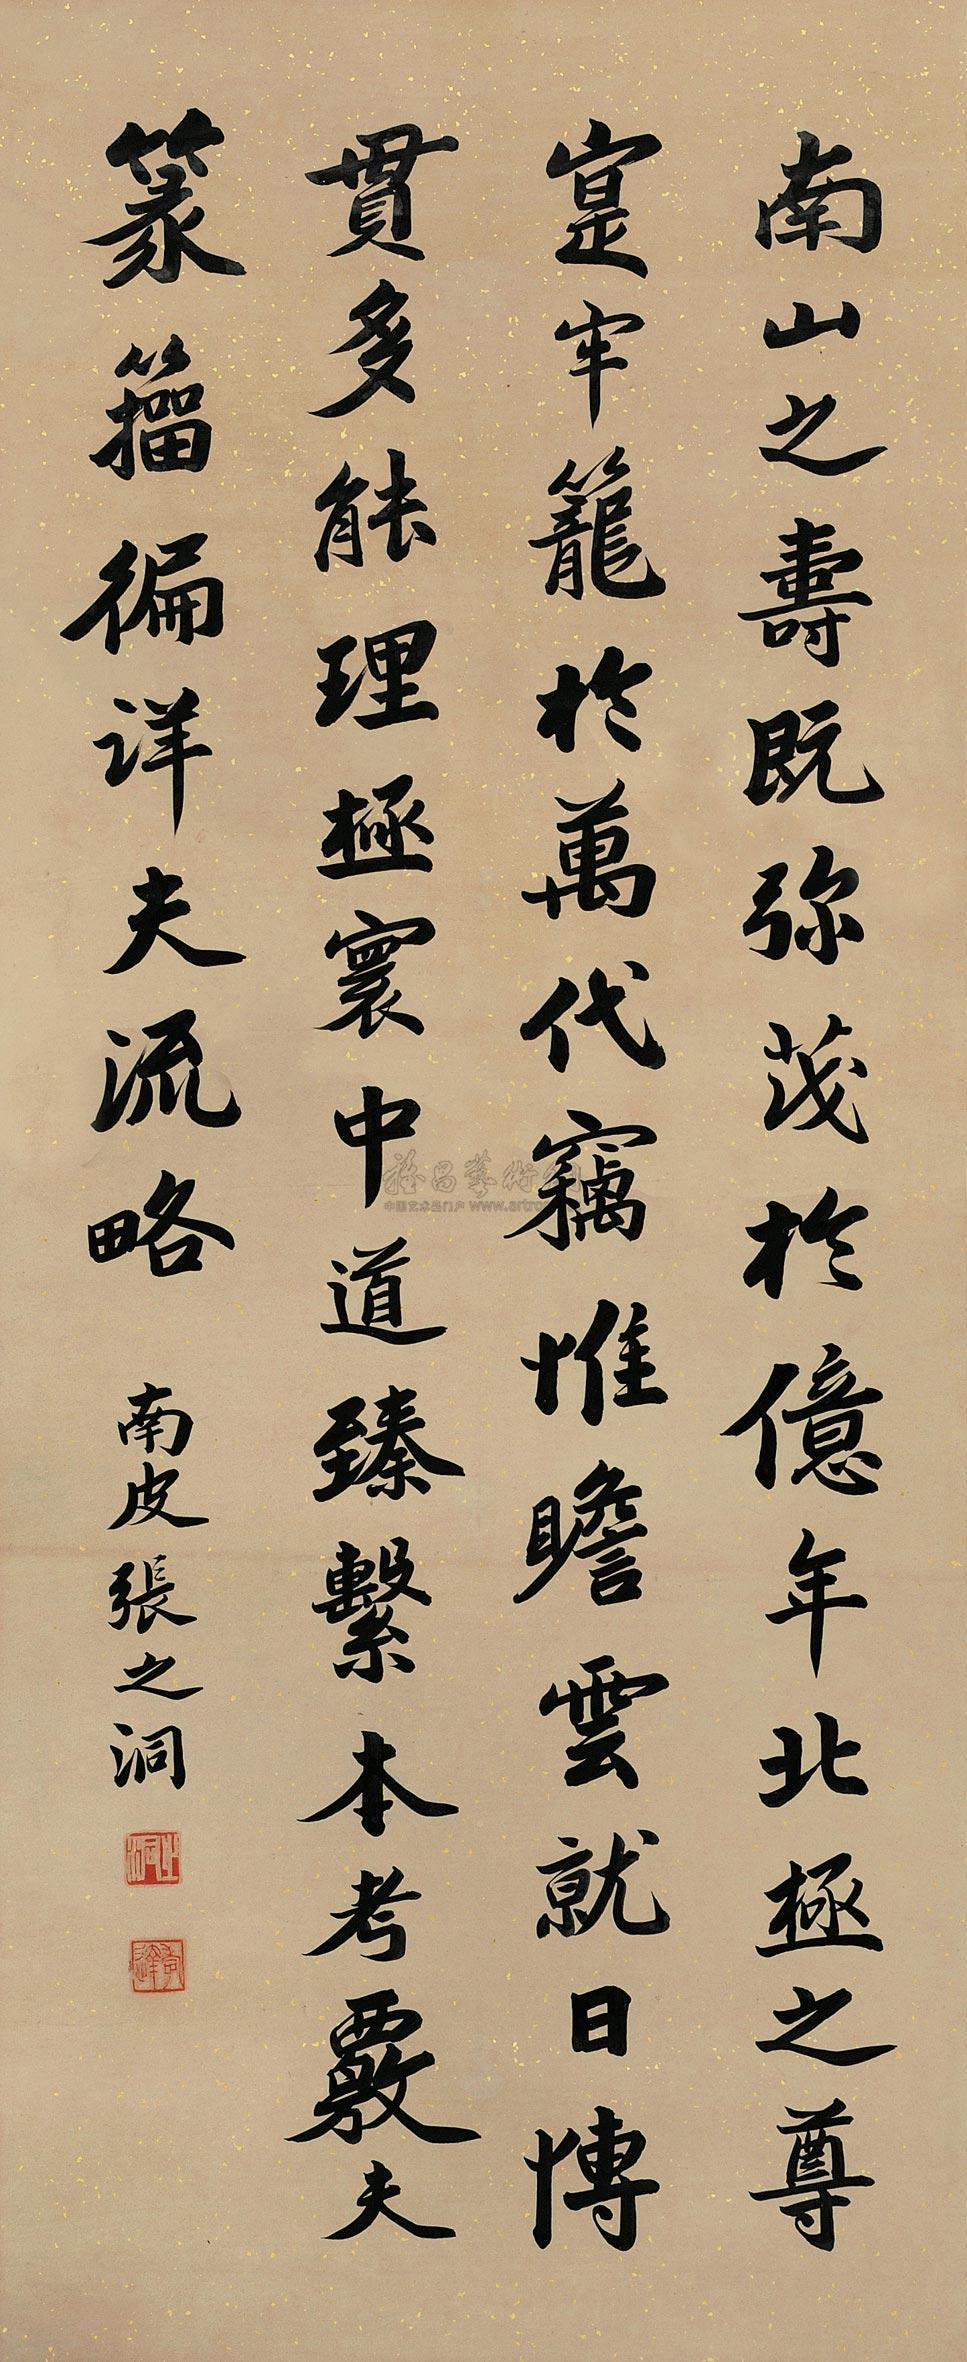 南山之壽既弥茂於億年北極之尊
寔牢籠於萬代竊惟瞻雲就日博
貫多能理極寰中道臻繫本考覈夫
篆籀徧詳夫流略
南皮張之洞
中国艺术品门户 www.artro